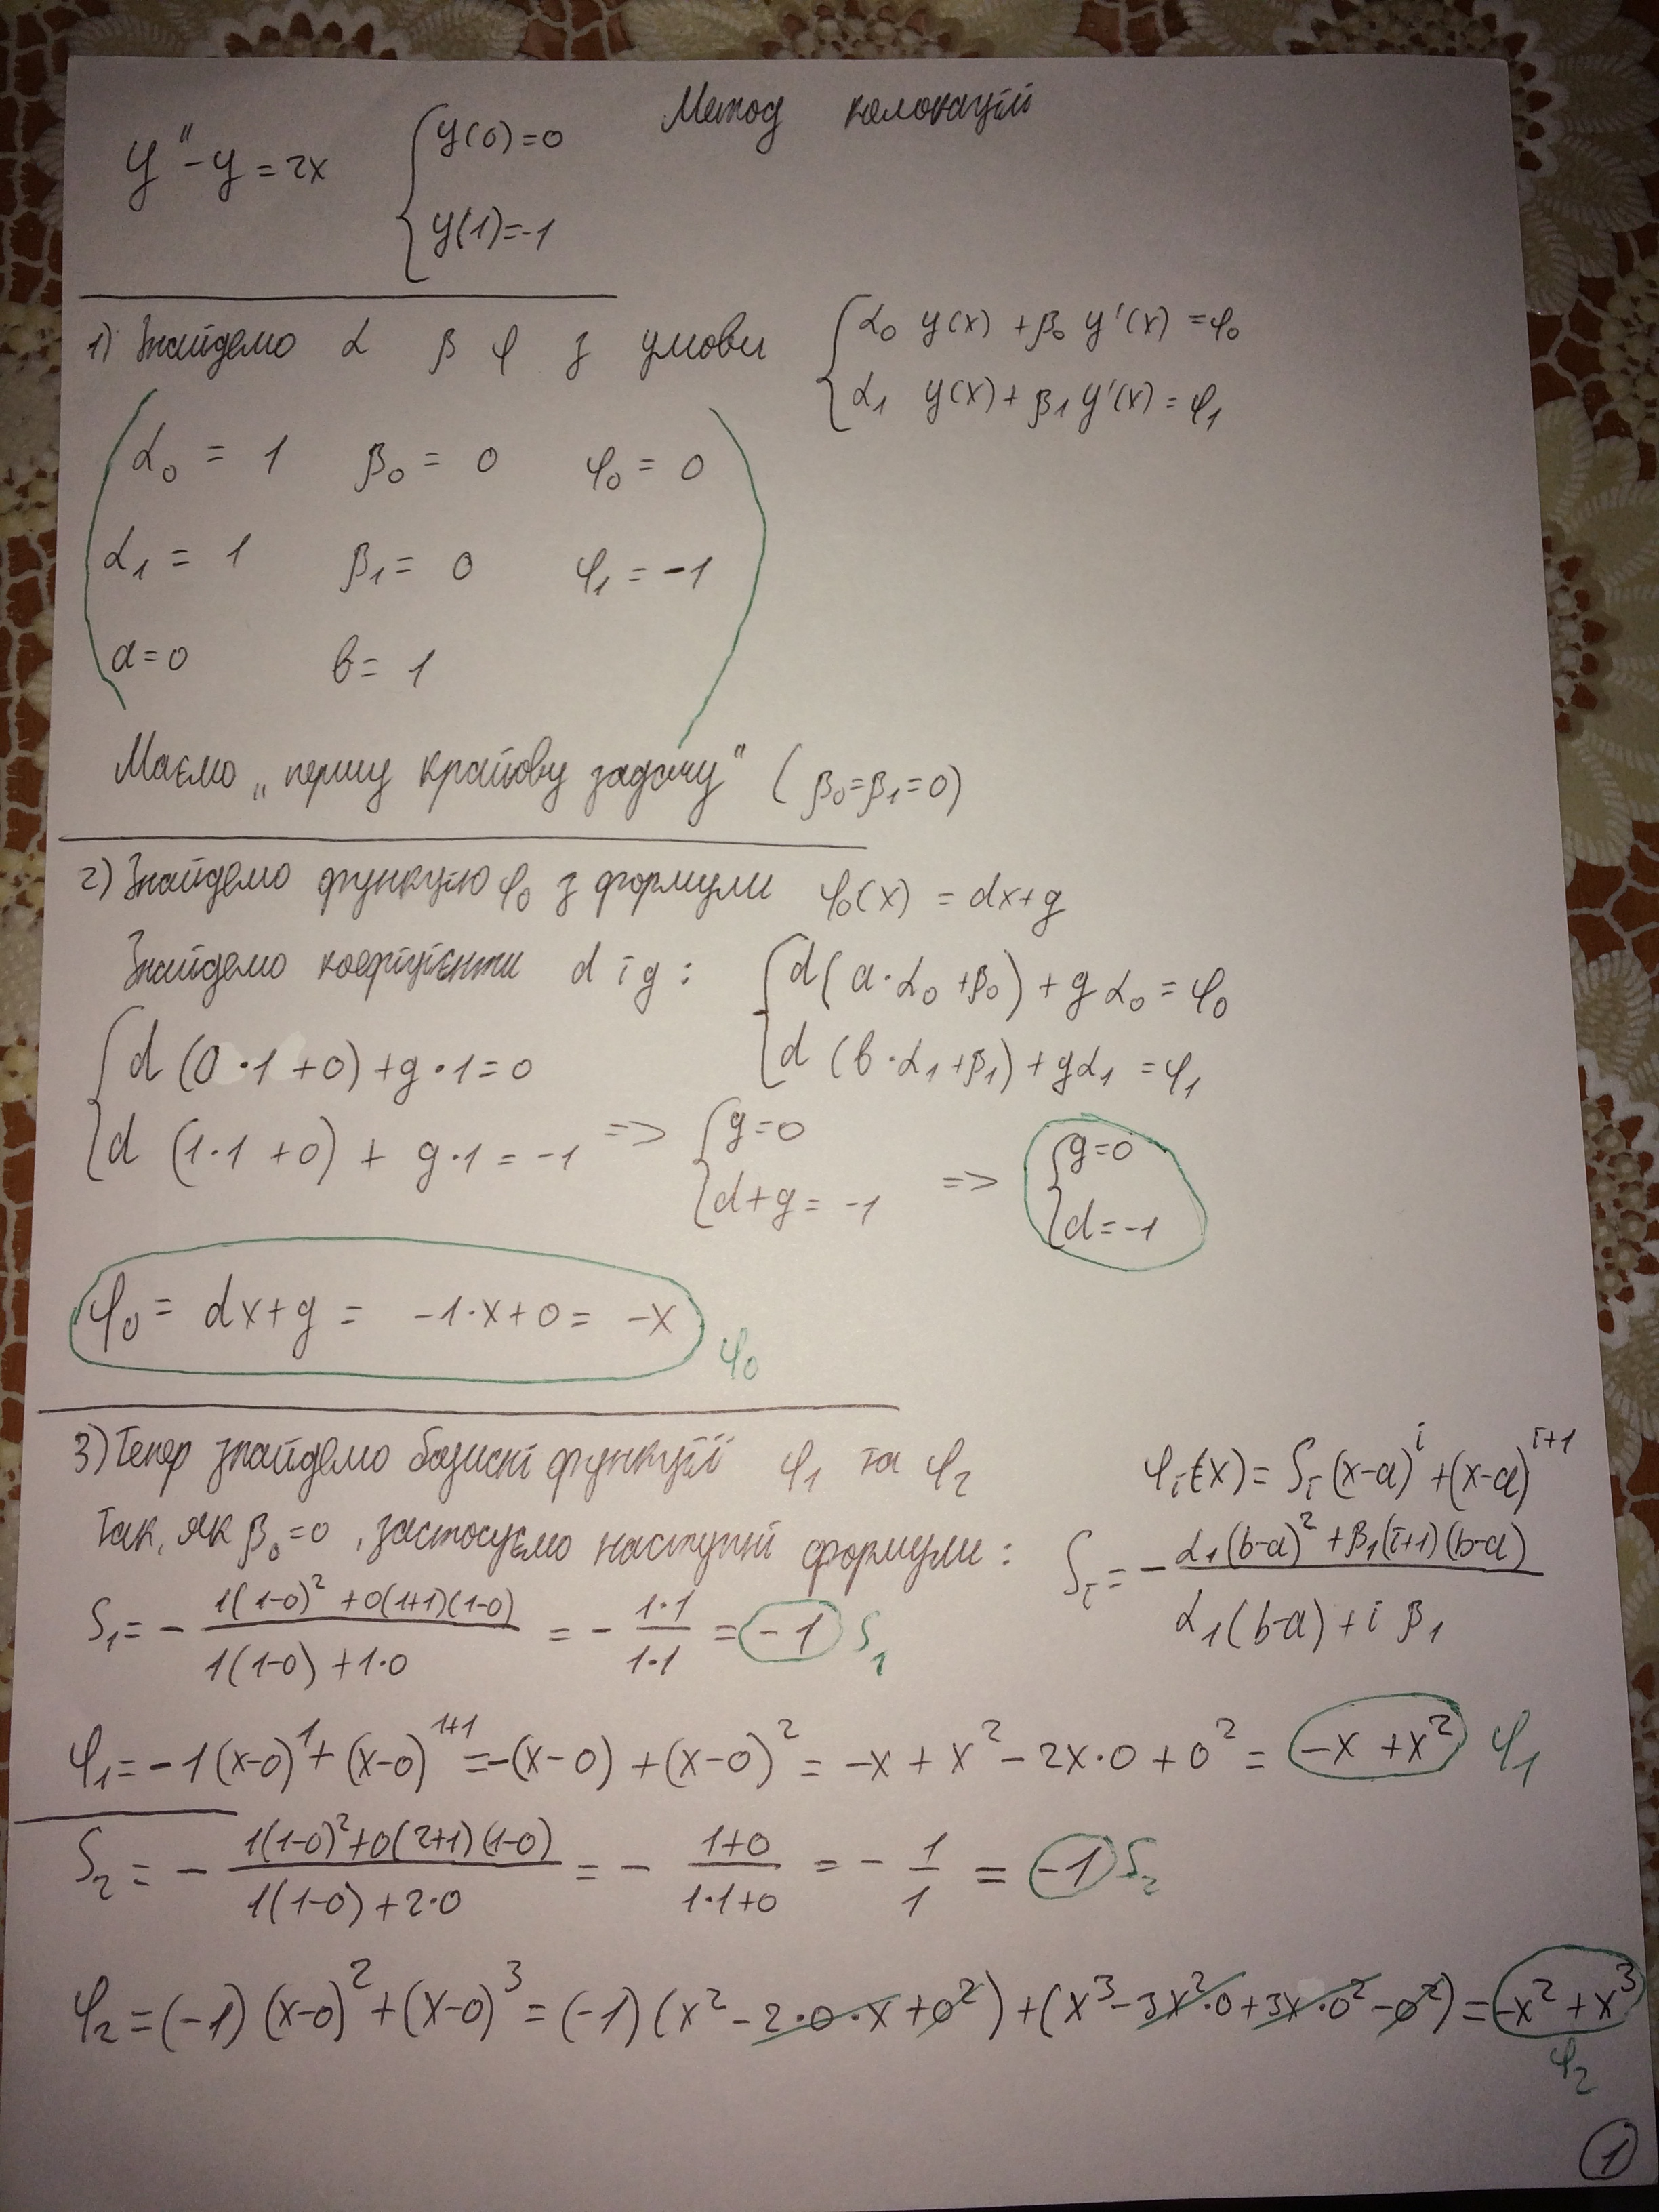 Метод колокацій
y'' - y = 2x { y(0)=0
y(1)=-1
1) Знайдемо α β φ з умови { α₀ y(x) + β₀ y'(x) = φ₀
α₁ y(x) + β₁ y'(x) = φ₁
α₀ = 1 β₀ = 0 φ₀ = 0
α₁ = 1 β₁ = 0 φ₁ = -1
a=0 b= 1
Маємо „першу крайову задачу" (β₀=β₁=0)
2) Знайдемо функцію φ₀ з формули φ₀(x) = dx+g
Знайдемо коефіцієнти d і g : { d(a·α₀+β₀) + gα₀ = φ₀
d(b·α₁+β₁) + gα₁ = φ₁
{ d(0·1+0)+g·1=0
d(1·1+0) + g·1 = -1 => { g=0
d+g = -1 => { g=0
d=-1
φ₀ = dx+g = -1·x+0 = -x φ₀
3) Тепер знайдемо базисні функції φ₁ та φ₂ φᵢ(x) = Sᵢ(x-a)ⁱ+(x-a)ⁱ⁺¹
Так, як β₀=0, застосуємо наступні формули: Sᵢ = - (α₁(b-a)²+β₁(i+1)(b-a)) / (α₁(b-a)+iβ₁)
S₁ = - (1(1-0)²+0(1+1)(1-0)) / (1(1-0)+1·0) = - (1·1)/(1·1) = -1 S₁
φ₁ = -1(x-0)¹+(x-0)¹⁺¹ = -(x-0)+(x-0)² = -x+x²-2x·0+0² = -x+x² φ₁
S₂ = - (1(1-0)²+0(2+1)(1-0)) / (1(1-0)+2·0) = - (1+0)/(1·1+0) = - 1/1 = -1 S₂
φ₂ = (-1)(x-0)²+(x-0)³ = (-1)(x²-2·0·x+0²)+(x³-3x²·0+3x·0²-0²) = -x²+x³
φ₂
1